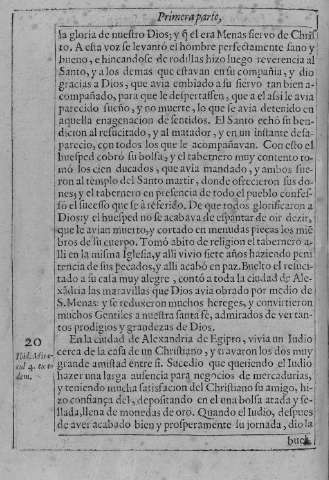 Primera parte,
la gloria de nuestro Dios; y q̃ el era Menas siervo de Chris
to. A esta voz se levantó el hombre perfectamente sano y
bueno, e hincandose de rodillas hizo luego reverencia al
Santo, y a los demas que estavan en su compañia, y dio
gracias a Dios, que avia embiado a su siervo tan bien a-
compañado, para que le despertassen, que a el assi le avia
parecido sueño, y no muerte, lo que se avia detenido en
aquella enagenacion de sentidos. El Santo echó su ben-
dicion al resucitado, y al matador, y en un instante desa-
parecio, con todos los que le acompañavan. Con esto el
huesped cobró su bolsa, y el tabernero muy contento to-
mó los cien ducados, que avia mandado, y ambos fue-
ron al templo del Santo martir, donde ofrecieron sus do-
nes; y el tabernero en presencia de todo el pueblo confes-
só el sucesso que se à referido. De que todos glorificaron a
Dios; y el huesped no se acabava de espantar de oir dezir,
que le avian muerto, y cortado en menudas piecas los miẽ
bros de su cuerpo. Tomó abito de religion el tabernero a-
lli en la misma Iglesia, y alli vivio siete años haziendo peni
tencia de sus pecados, y alli acabó en paz. Buelto el resuci-
tado a su casa muy alegre, contó a toda la ciudad de Ale-
xãdria las maravillas que Dios avia obrado por medio de
S. Menas: y se reduxeron muchos hereges, y convirtieron
muchos Gentiles a nuestra santa fè, admirados de ver tan-
tos prodigios y grandezas de Dios.
20
En la ciudad de Alexandria de Egipto, vivia un Iudio
cerca de la casa de un Christiano, y travaron los dos muy
grande amistad entre si. Sucedio que queriendo el Iudio
hazer una larga ausencia para negocios de mercadurias,
y teniendo mucha satisfacion del Christiano su amigo, hi-
zo confiança del, depositando en el una bolsa atada y se-
llada, llena de monedas de oro. Quando el Iudio, despues
de aver acabado bien y prosperamente su jornada, dio la
buel-